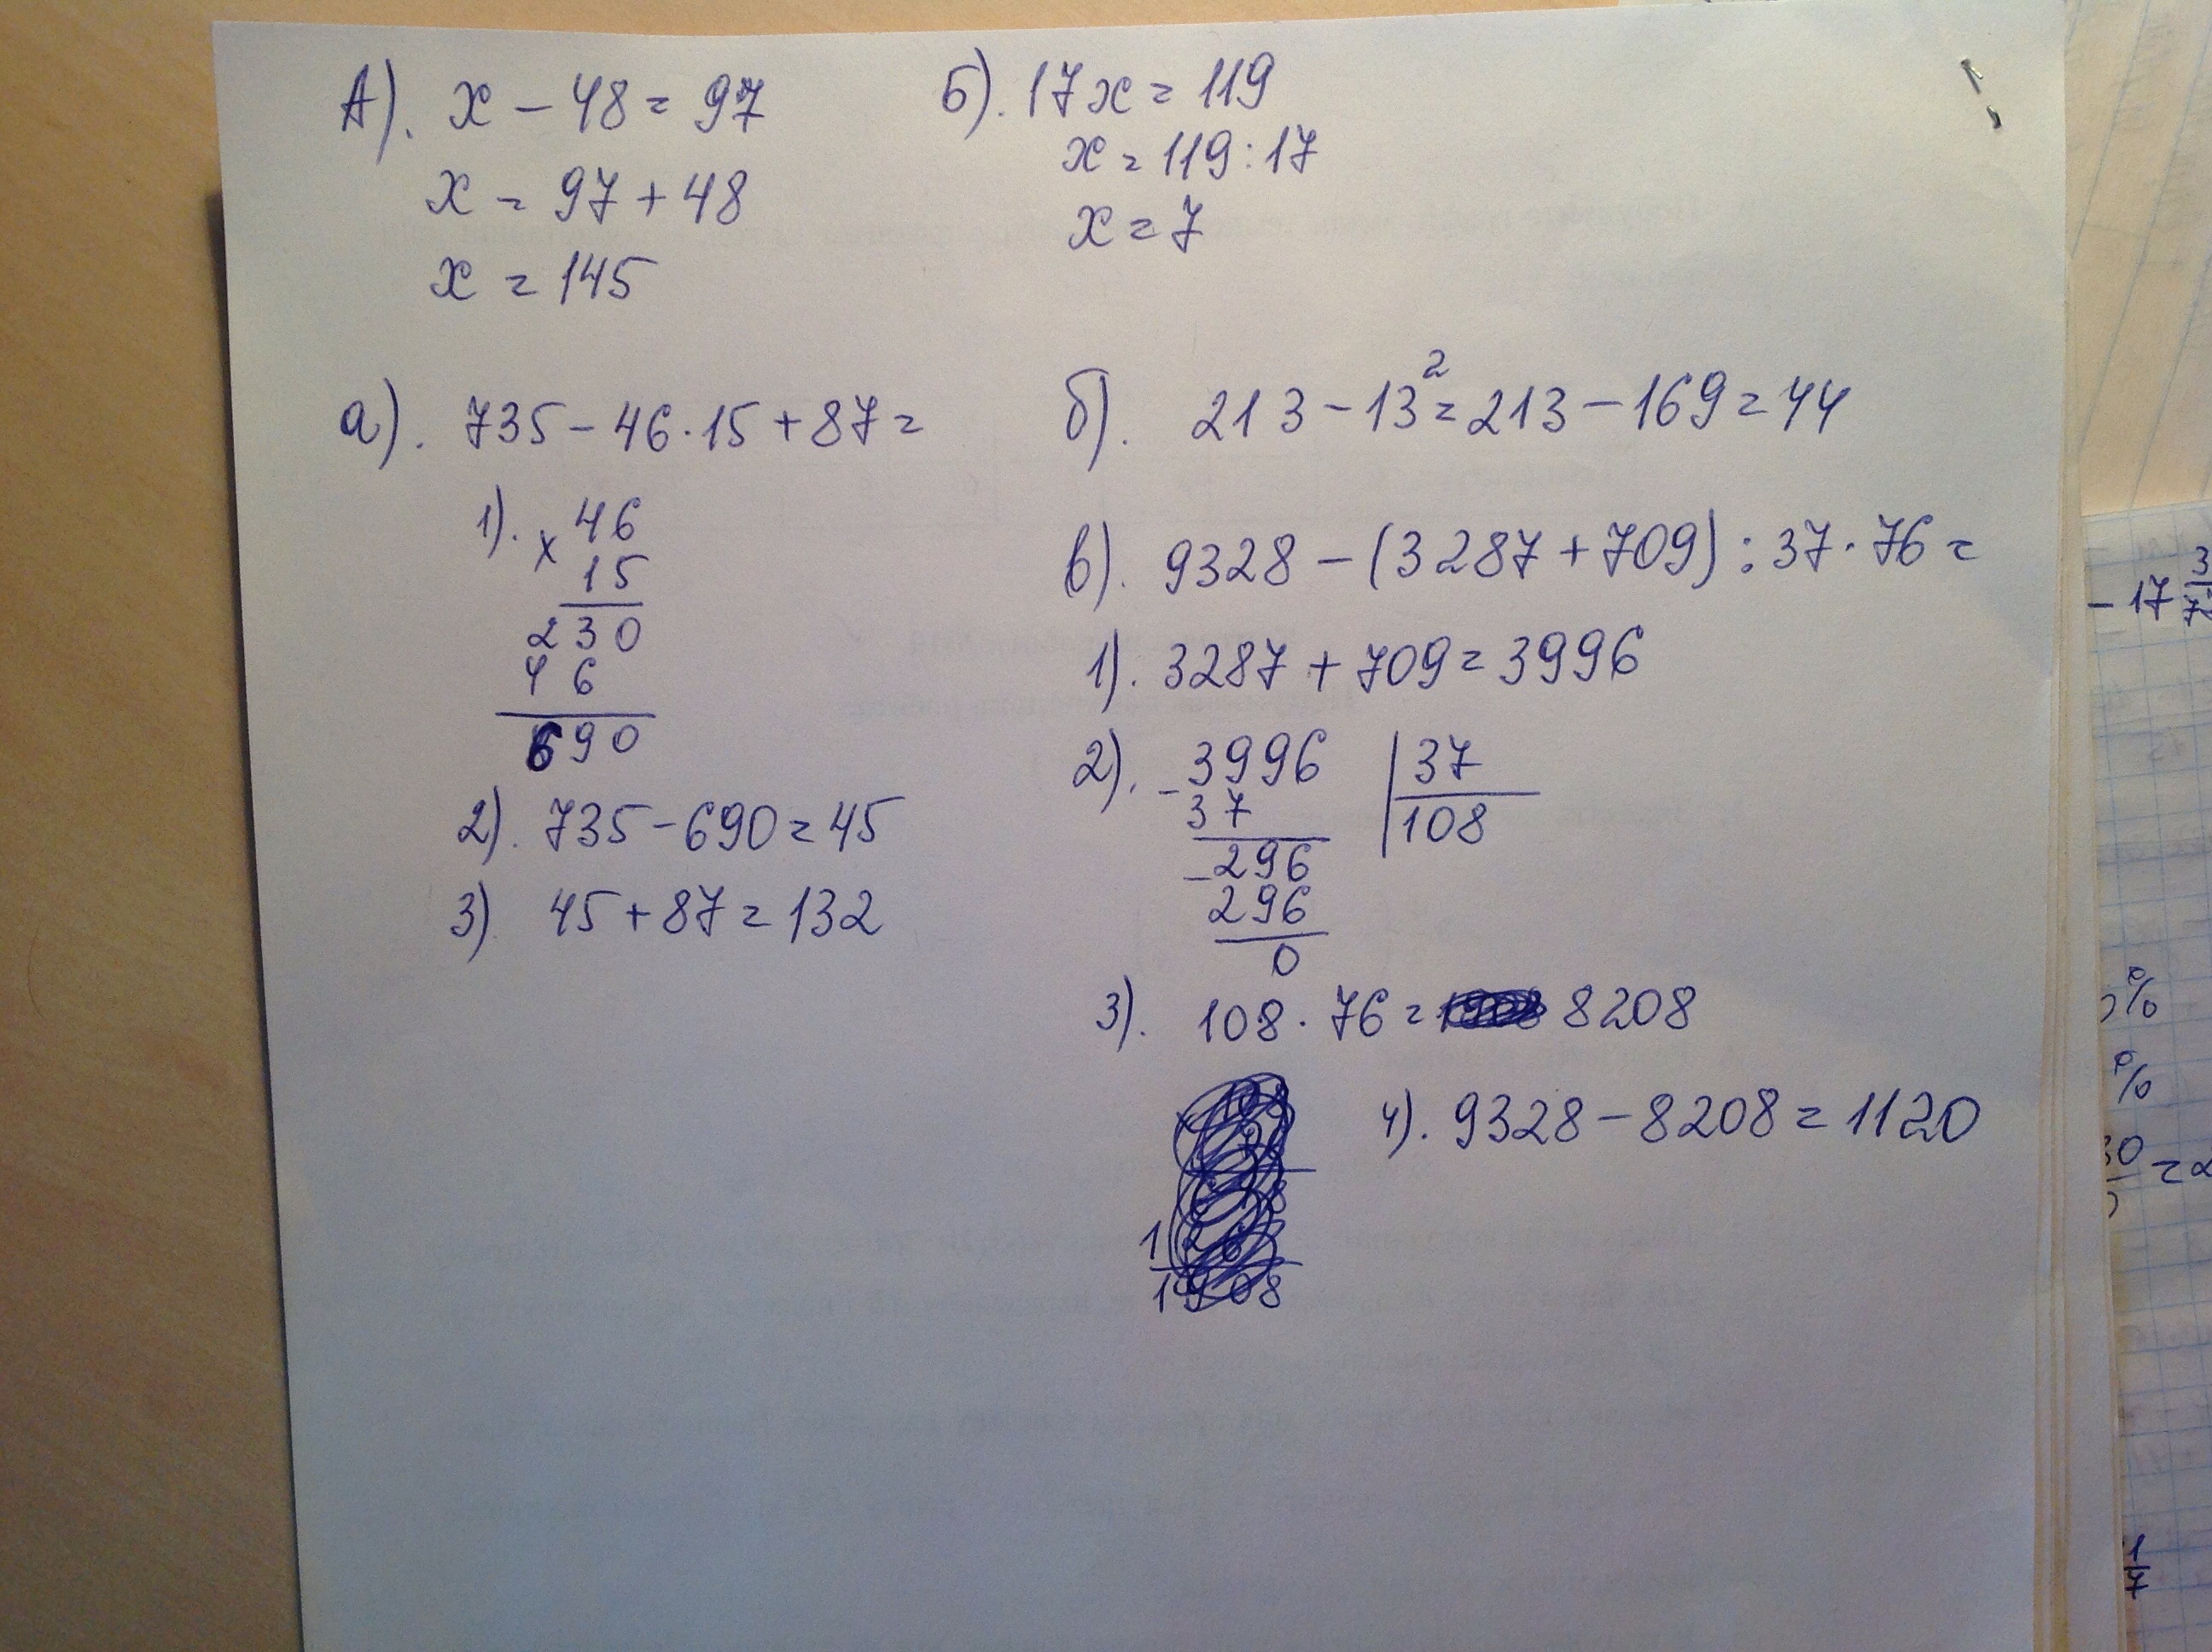 А). x - 48 = 97
x = 97 + 48
x = 145
Б). 17x = 119
x = 119 : 17
x = 7
а). 735 - 46 · 15 + 87 =
1). x 46
15
230
46
690
2). 735 - 690 = 45
3) 45 + 87 = 132
б). 213 - 13² = 213 - 169 = 44
в). 9328 - (3287 + 709) : 37 · 76 =
1). 3287 + 709 = 3996
2). - 3996 | 37
37 | 108
- 296
296
0
3). 108 · 76 = 8208
4). 9328 - 8208 = 1120
- 17 3/72
%
%
30 = 2
1/7